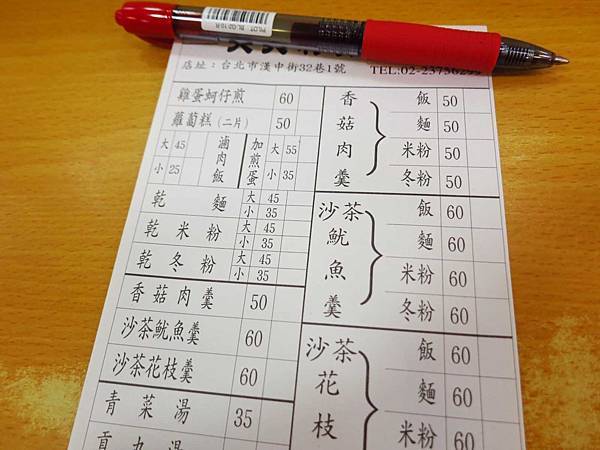 店址：台北市漢中街32巷1號 TEL:02-23756299
雞蛋蚵仔煎 60
蘿蔔糕(二片) 50
滷肉飯 大 45 小 25
加煎蛋 大 55 小 35
乾麵 大 45 小 35
乾米粉 大 45 小 35
乾冬粉 大 45 小 35
香菇肉羹 50
沙茶魷魚羹 60
沙茶花枝羹 60
青菜湯 35
貢丸湯
香菇肉羹
飯 50
麵 50
米粉 50
冬粉 50
沙茶魷魚羹
飯 60
麵 60
米粉 60
冬粉 60
沙茶花枝
飯 60
麵 60
米粉 60